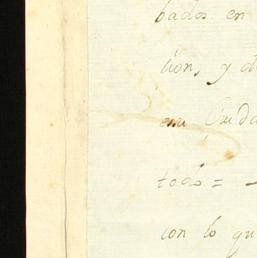 bados en
cion, y d
esa Ciuda
todo = -
con lo qu